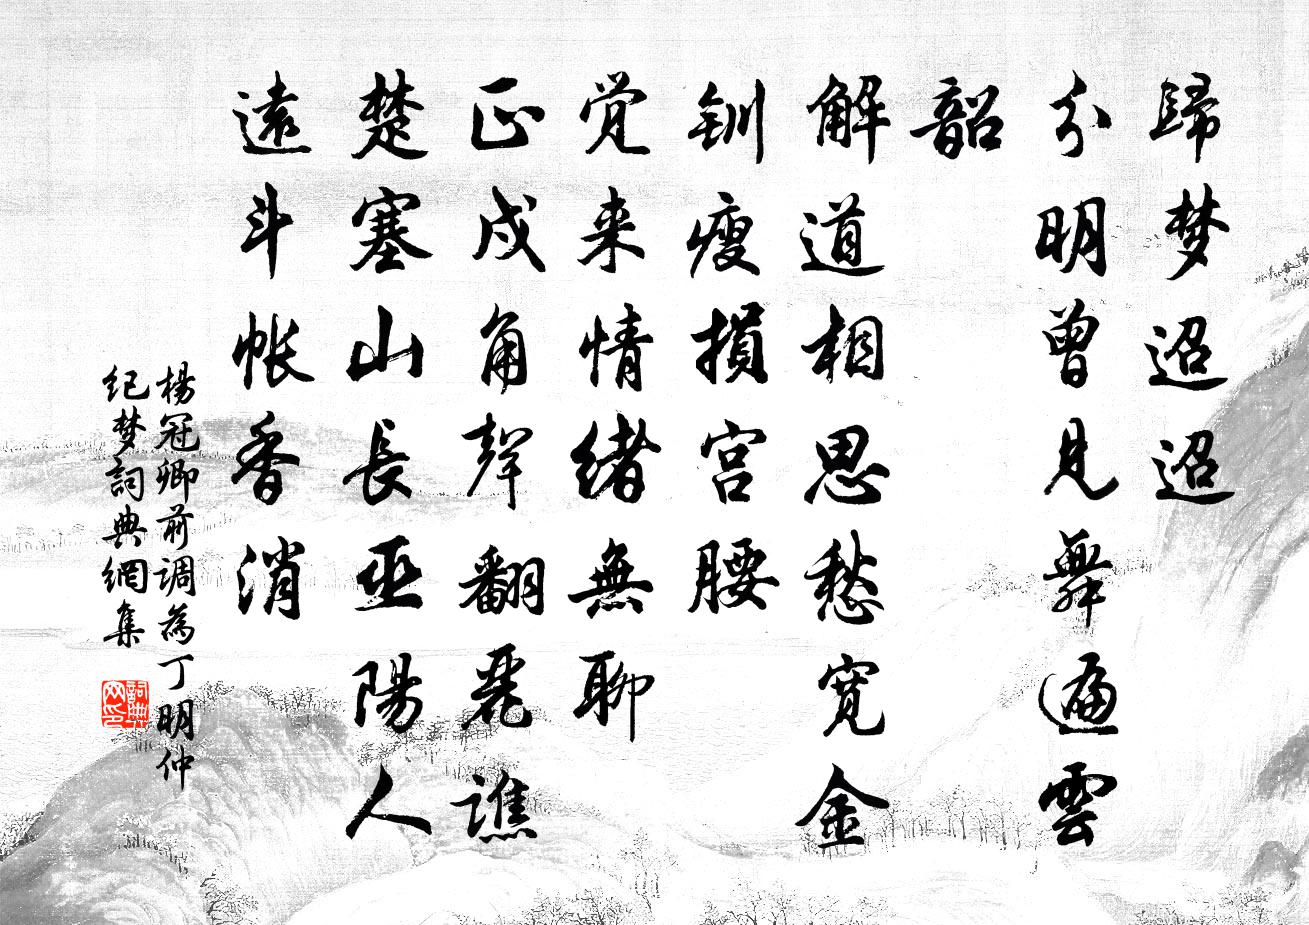 歸梦迢迢
分明曾見舞遍雲
韶
解道相思愁寬金
釧瘦損宮腰
觉来情緒無聊
正戍角聲翻麗譙
楚塞山長巫陽人
遠斗帐香消
楊冠卿前調為丁明仲
纪梦詞典網集
詞典
网印